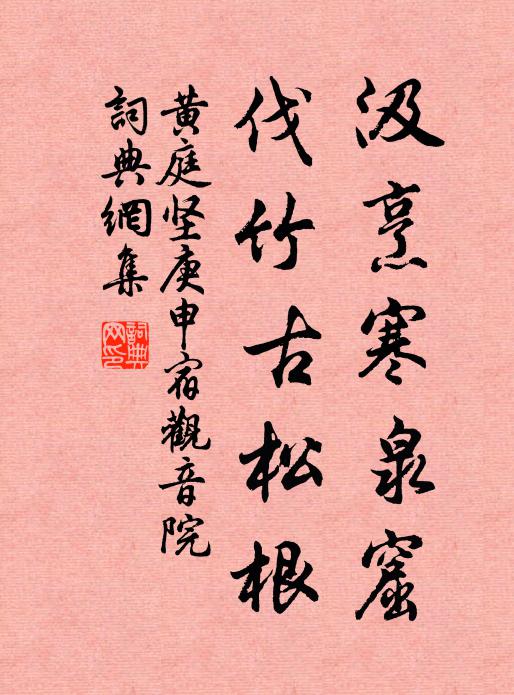 汲烹寒泉窟
伐竹古松根
黄庭坚庚申宿觀音院
詞典網集
詞典网印